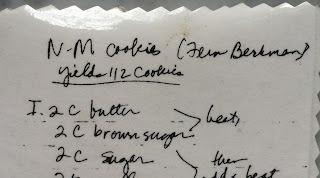 N-M Cookies (Fern Berkman)
yields 112 Cookies
I. 2 C butter
2 C brown sugar > beat,
2 C sugar > then
add & beat